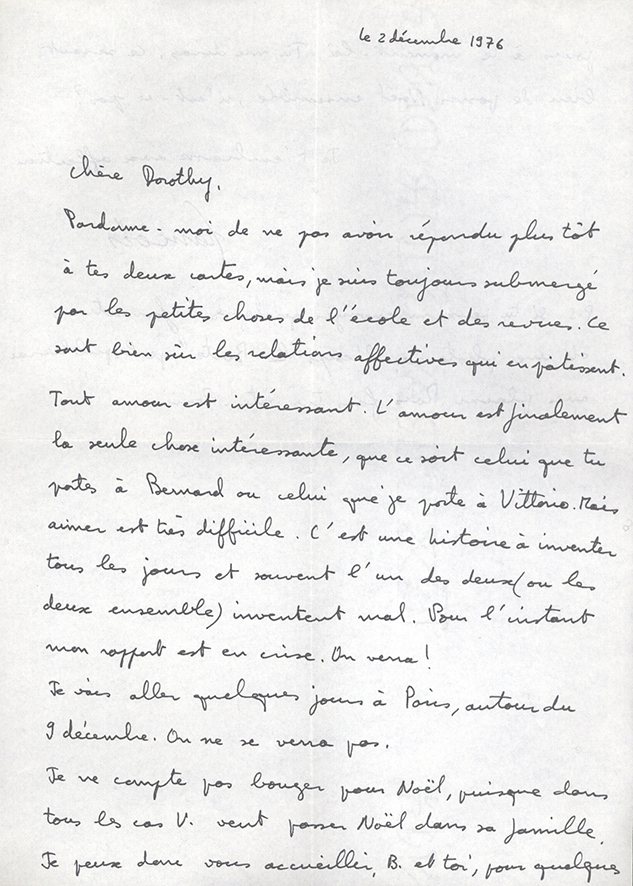 le 2 décembre 1976
Chère Dorothy,
Pardonne-moi de ne pas avoir répondu plus tôt
à tes deux cartes, mais je suis toujours submergé
par les petites choses de l'école et des revues. Ce
sont bien sûr les relations affectives qui en pâtissent.
Tout amour est intéressant. L'amour est finalement
la seule chose intéressante, que ce soit celui que tu
portes à Bernard ou celui que je porte à Vittorio. Mais
aimer est très difficile. C'est une histoire à inventer
tous les jours et souvent l'un des deux (ou les
deux ensemble) inventent mal. Pour l'instant
mon rapport est en crise. On verra !
Je vais aller quelques jours à Paris, autour du
9 décembre. On ne se verra pas.
Je ne compte pas bouger pour Noël, puisque dans
tous les cas V. veut passer Noël dans sa famille.
Je peux donc vous accueillir, B. et toi, pour quelques